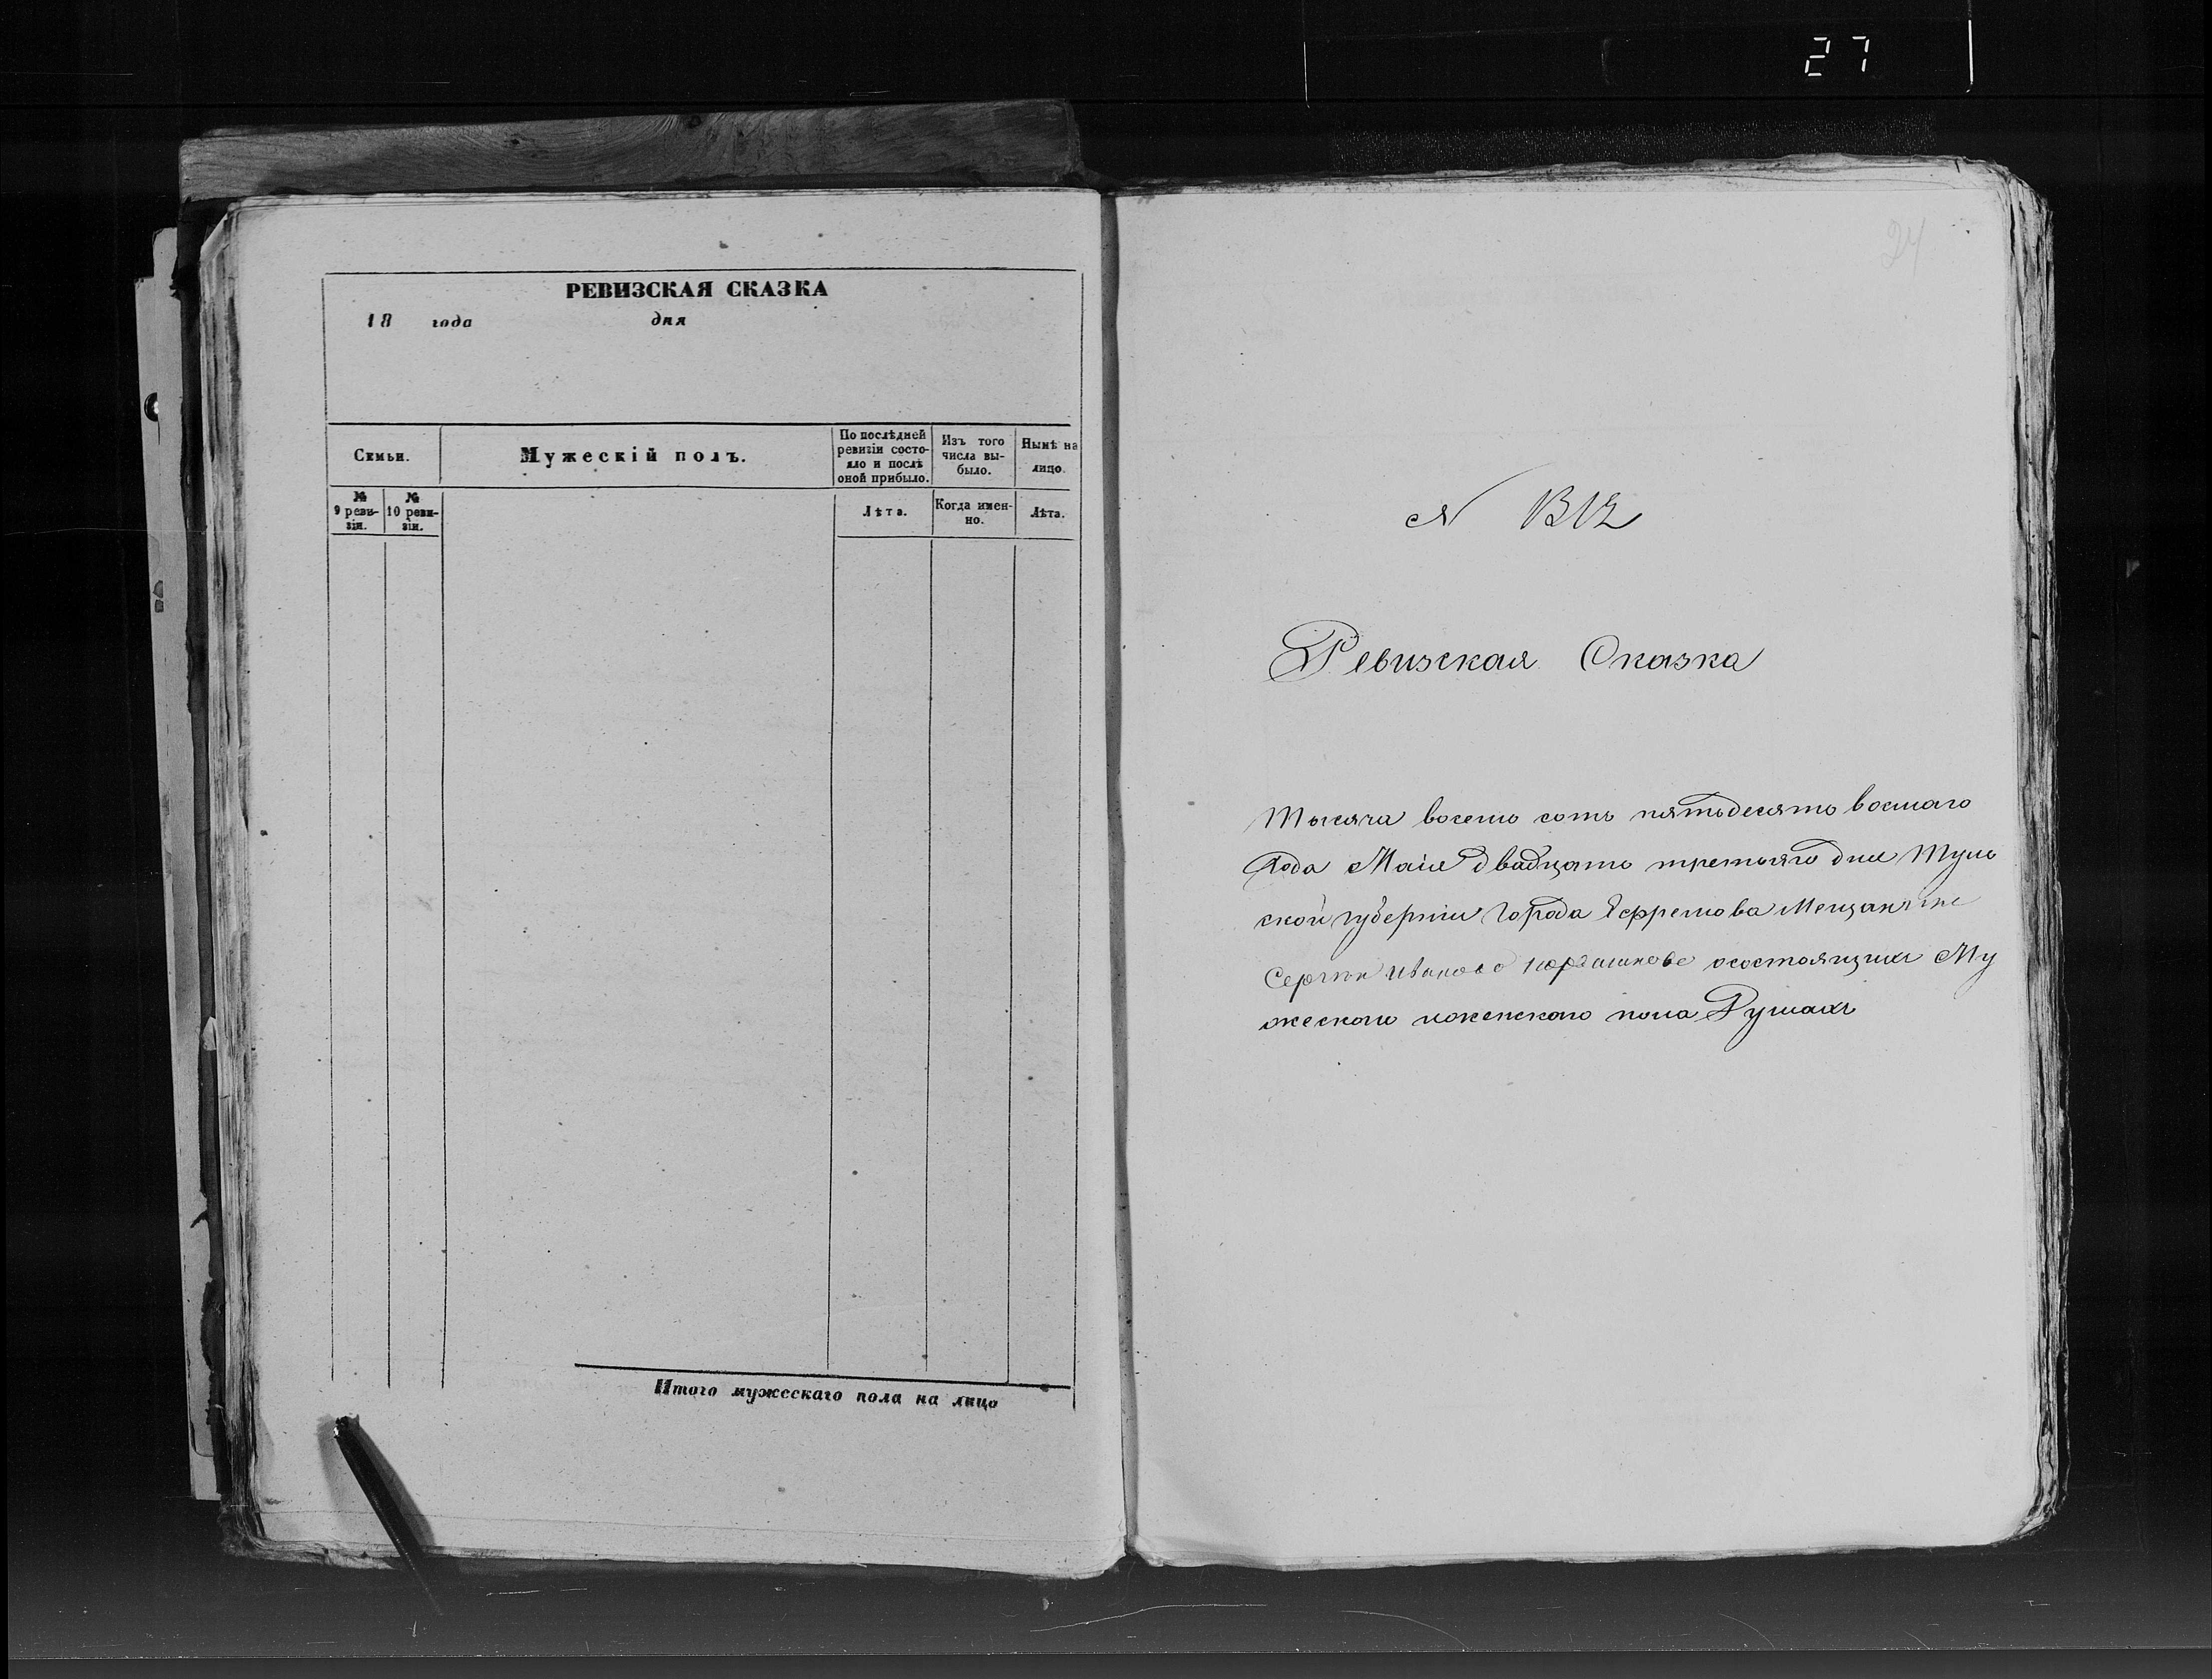 27
РЕВИЗСКАЯ СКАЗКА
18 года дня
Семьи.
Мужескій полъ.
По послѣдней ревизіи состояло и послѣ оной прибыло.
Изъ того числа выбыло.
Нынѣ на лицо.
№ 9 ревизіи.
№ 10 ревизіи.
Лѣта.
Когда именно.
Лѣта.
Итого мужескаго пола на лицо
24
Ревизская Сказка
Тысяча восемь сотъ пятьдесятъ восмаго
Года Маія двадцать третьяго дня Туль
ской губерніи Города Ефремова
Иванове осостоящихъ Му
жескаго иженскаго пола Душахъ